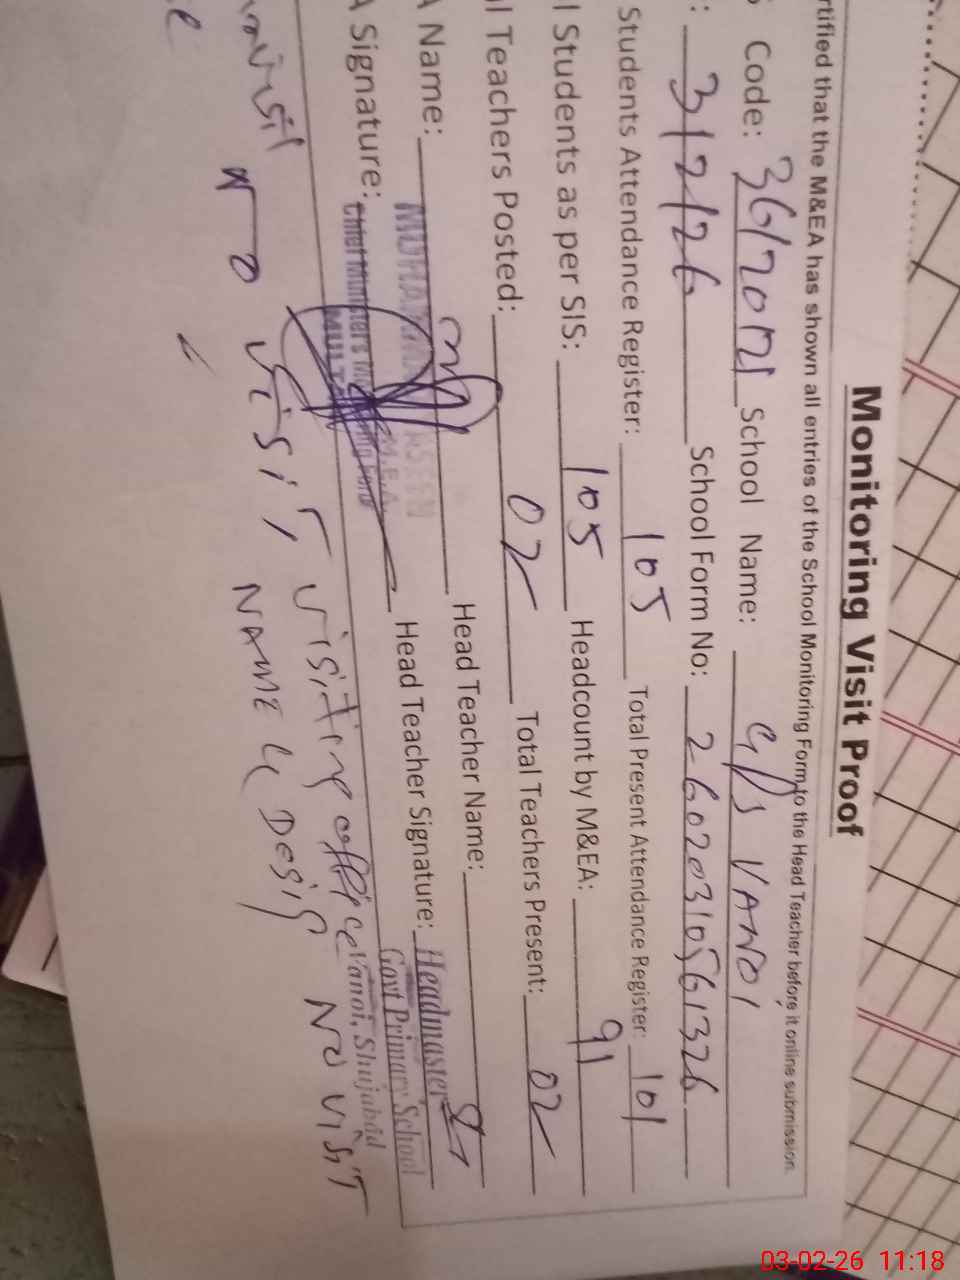 Monitoring Visit Proof
rtified that the M&EA has shown all entries of the School Monitoring Form to the Head Teacher before it online submission.
Code: 36120121 School Name: G/PS VANOI
: 3/2/26 School Form No: 2602031056 1326
Students Attendance Register: 105 Total Present Attendance Register: 101
l Students as per SIS: 105 Headcount by M&EA: 91
al Teachers Posted: 02 Total Teachers Present: 02
A Name: Head Teacher Name:
A Signature: Head Teacher Signature:
Chief Minister's Monitoring Force
Headmaster
Govt Primary School
Vanoi, Shujabad
NO VISIT visiting office NO VISIT
NAME & Desig
03-02-26 11:18